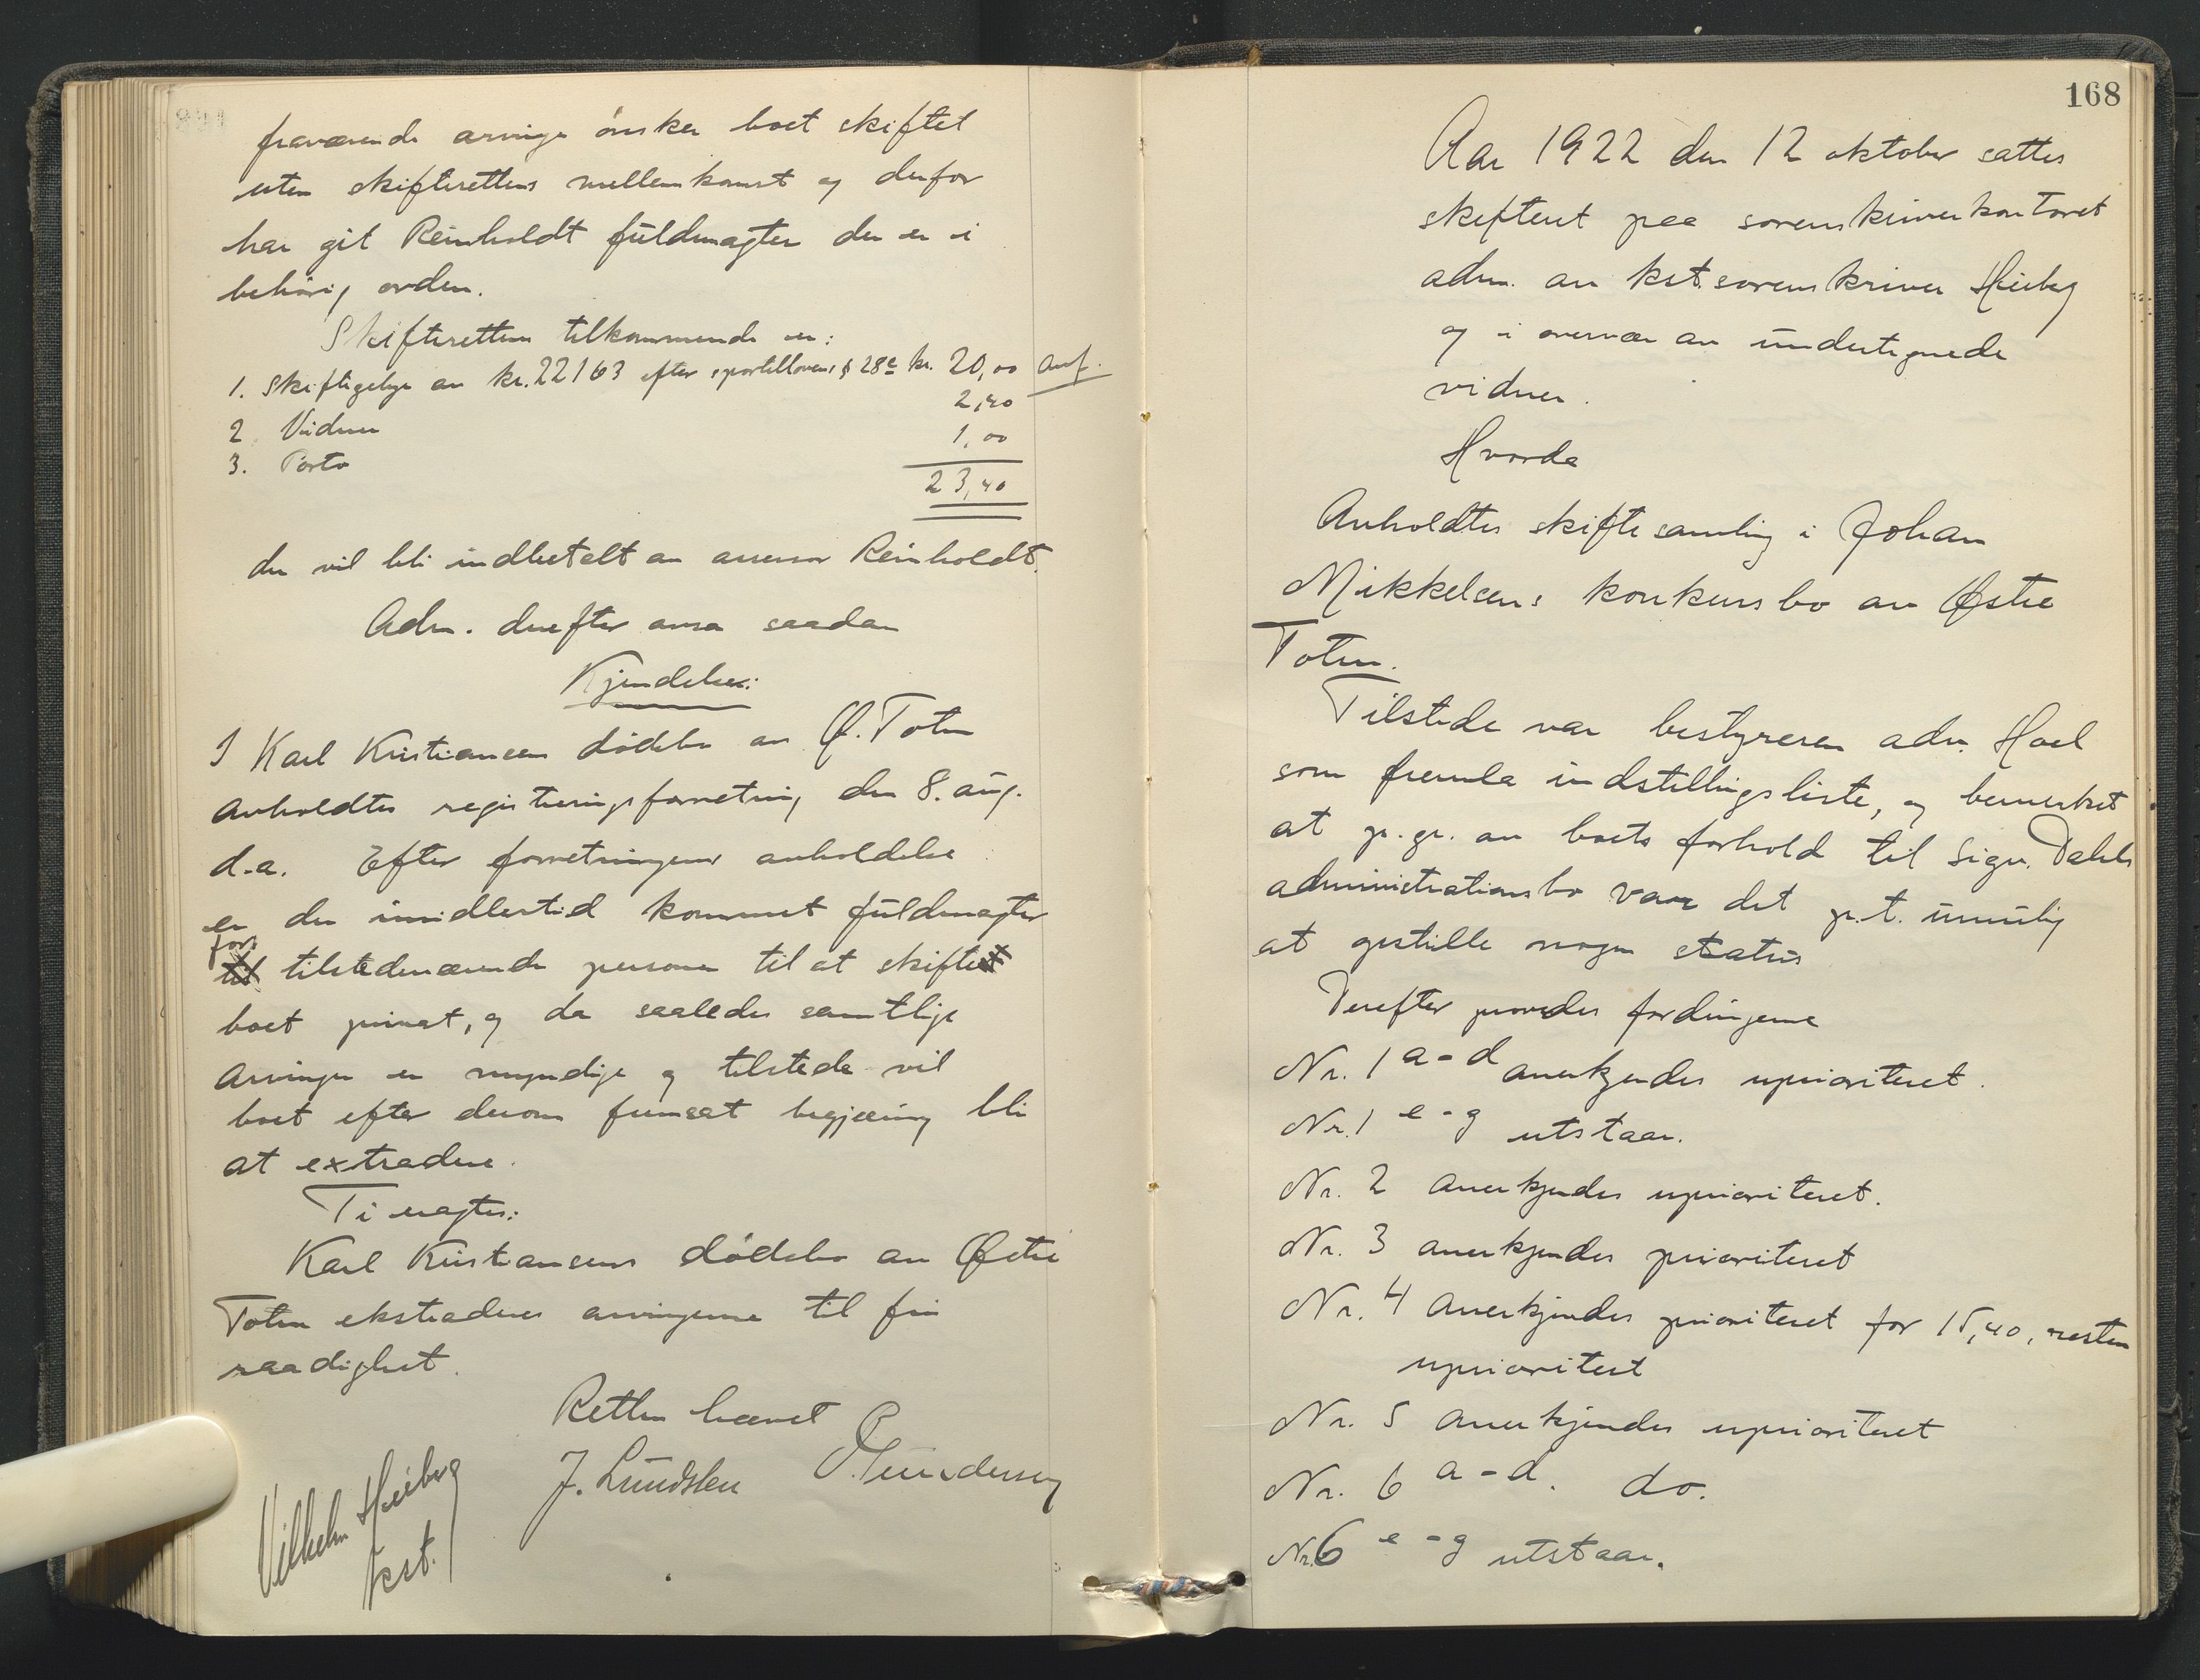 fraværende arvinge ønsker boet skiftet
uten skifterettens mellemkomst og derfor
har git Reinholdt fuldmagter der er i
behørig orden.
Skifteretten tilkommende er:
1. Skiftegebyr av kr. 22163 efter sportellovens § 28e kr. 20,00 anf.
2. Vidner 2,40
3. Porto 1,00
23,40
der vil bli indbetalt av Reinholdt.
Adm. derefter avsa saadan
Kjendelse:
I Karl Kristiansens dødsbo av Ø. Toten
avholdtes registreringsforretning den 8. aug.
d.a. Efter forretningens avholdelse
er der imidlertid kommet fuldmagter
for
til tilstedeværende personer til at skifte
boet privat, og da saaledes samtlige
arvinger er myndige og tilstede vil
boet efter derom fremsat begjæring bli
at extradere.
Ti eragtes:
Karl Kristiansens dødsbo av Østre
Toten ekstraderes arvingerne til fri
raadighet.
Retten hævet
Vilhelm Heiberg
kst.
J. Lundsten
168
Aar 1922 den 12 oktober sattes
skifteret paa sorenskriverkontoret
adm. av kst. sorenskriver Heiberg
og i overvær av undertegnede
vidner.
Hvorda
Avholdtes skiftesamling i Johan
Mikkelsens konkursbo av Østre
Toten.
Tilstede var bestyreren adv. Hoel
som fremla indstillingsliste, og bemerket
at p.gr. av boets forhold til Sigv. Dahls
administrationsbo var det p.t. umulig
at opstille nogen status
Derefter prøvedes fordringerne
Nr. 1 a-d anerkjendes uprioritert.
Nr. 1 e-g utstaar.
Nr. 2 anerkjendes uprioriteret.
Nr. 3 anerkjendes prioriteret
Nr. 4 anerkjendes prioriteret for 15,40, resten
uprioritert
Nr. 5 anerkjendes uprioriteret
Nr. 6 a-d. do.
Nr. 6 e-g utstaar.